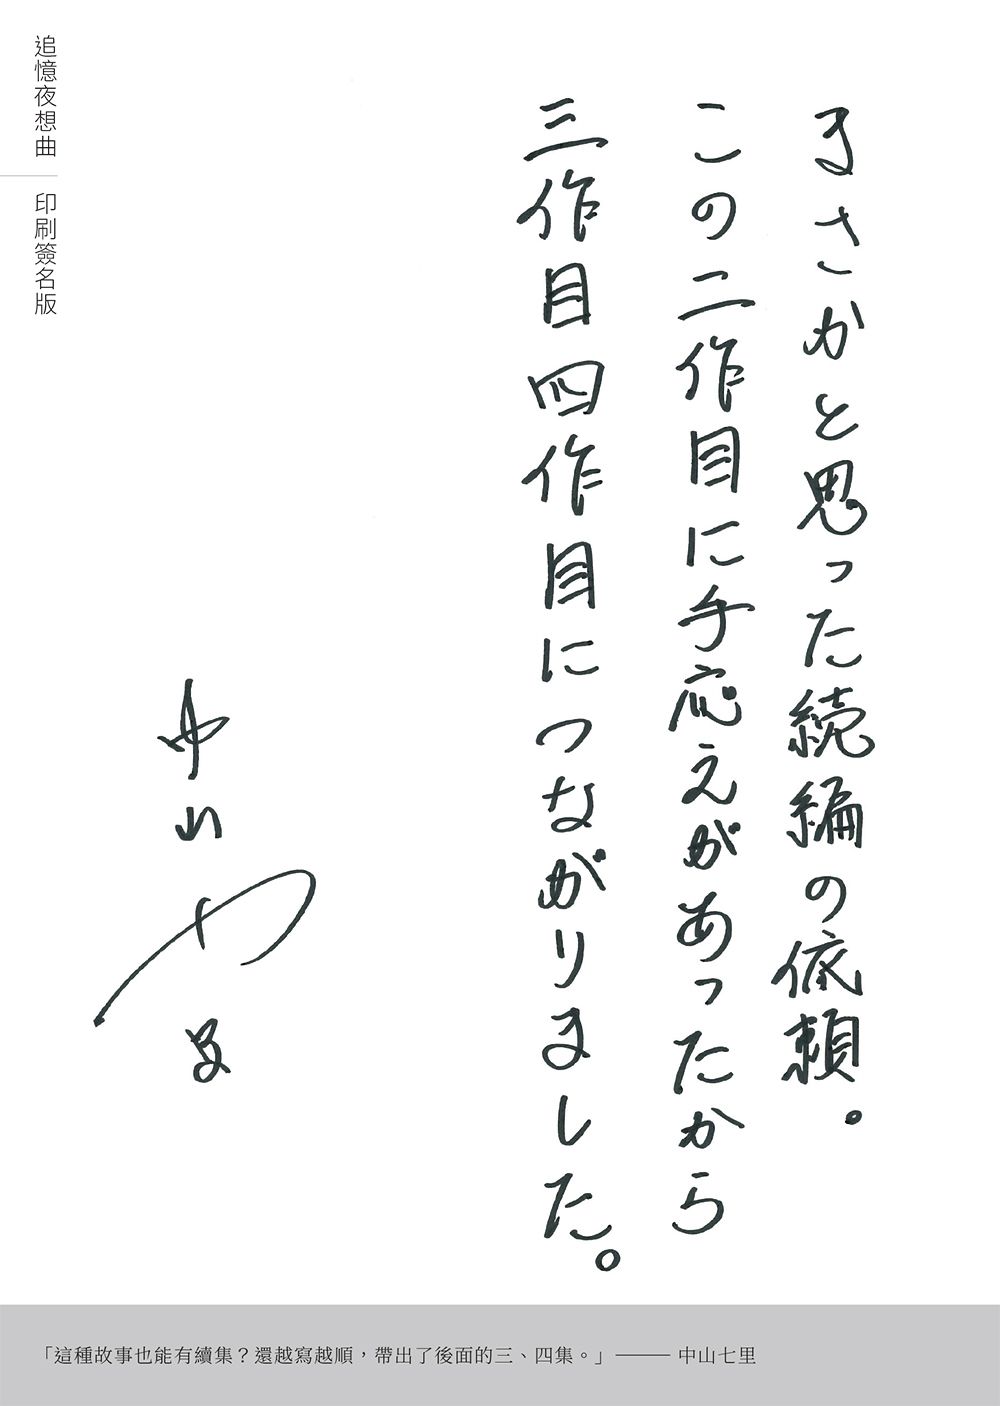 追憶夜想曲
印刷簽名版
まさかと思った続編の依頼。
この二作目に手応えがあったから
三作目四作目につながりました。
中山七里
「這種故事也能有續集？還越寫越順，帶出了後面的三、四集。」——中山七里